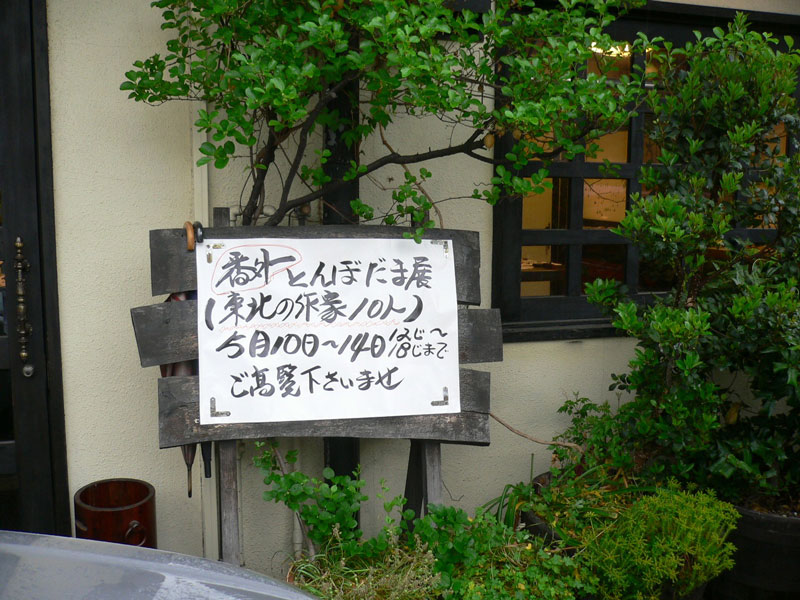 香水とんぼだま展
(東北の作家10人)
5月10日～14日 12じ～18じまで
ご高覧下さいませ